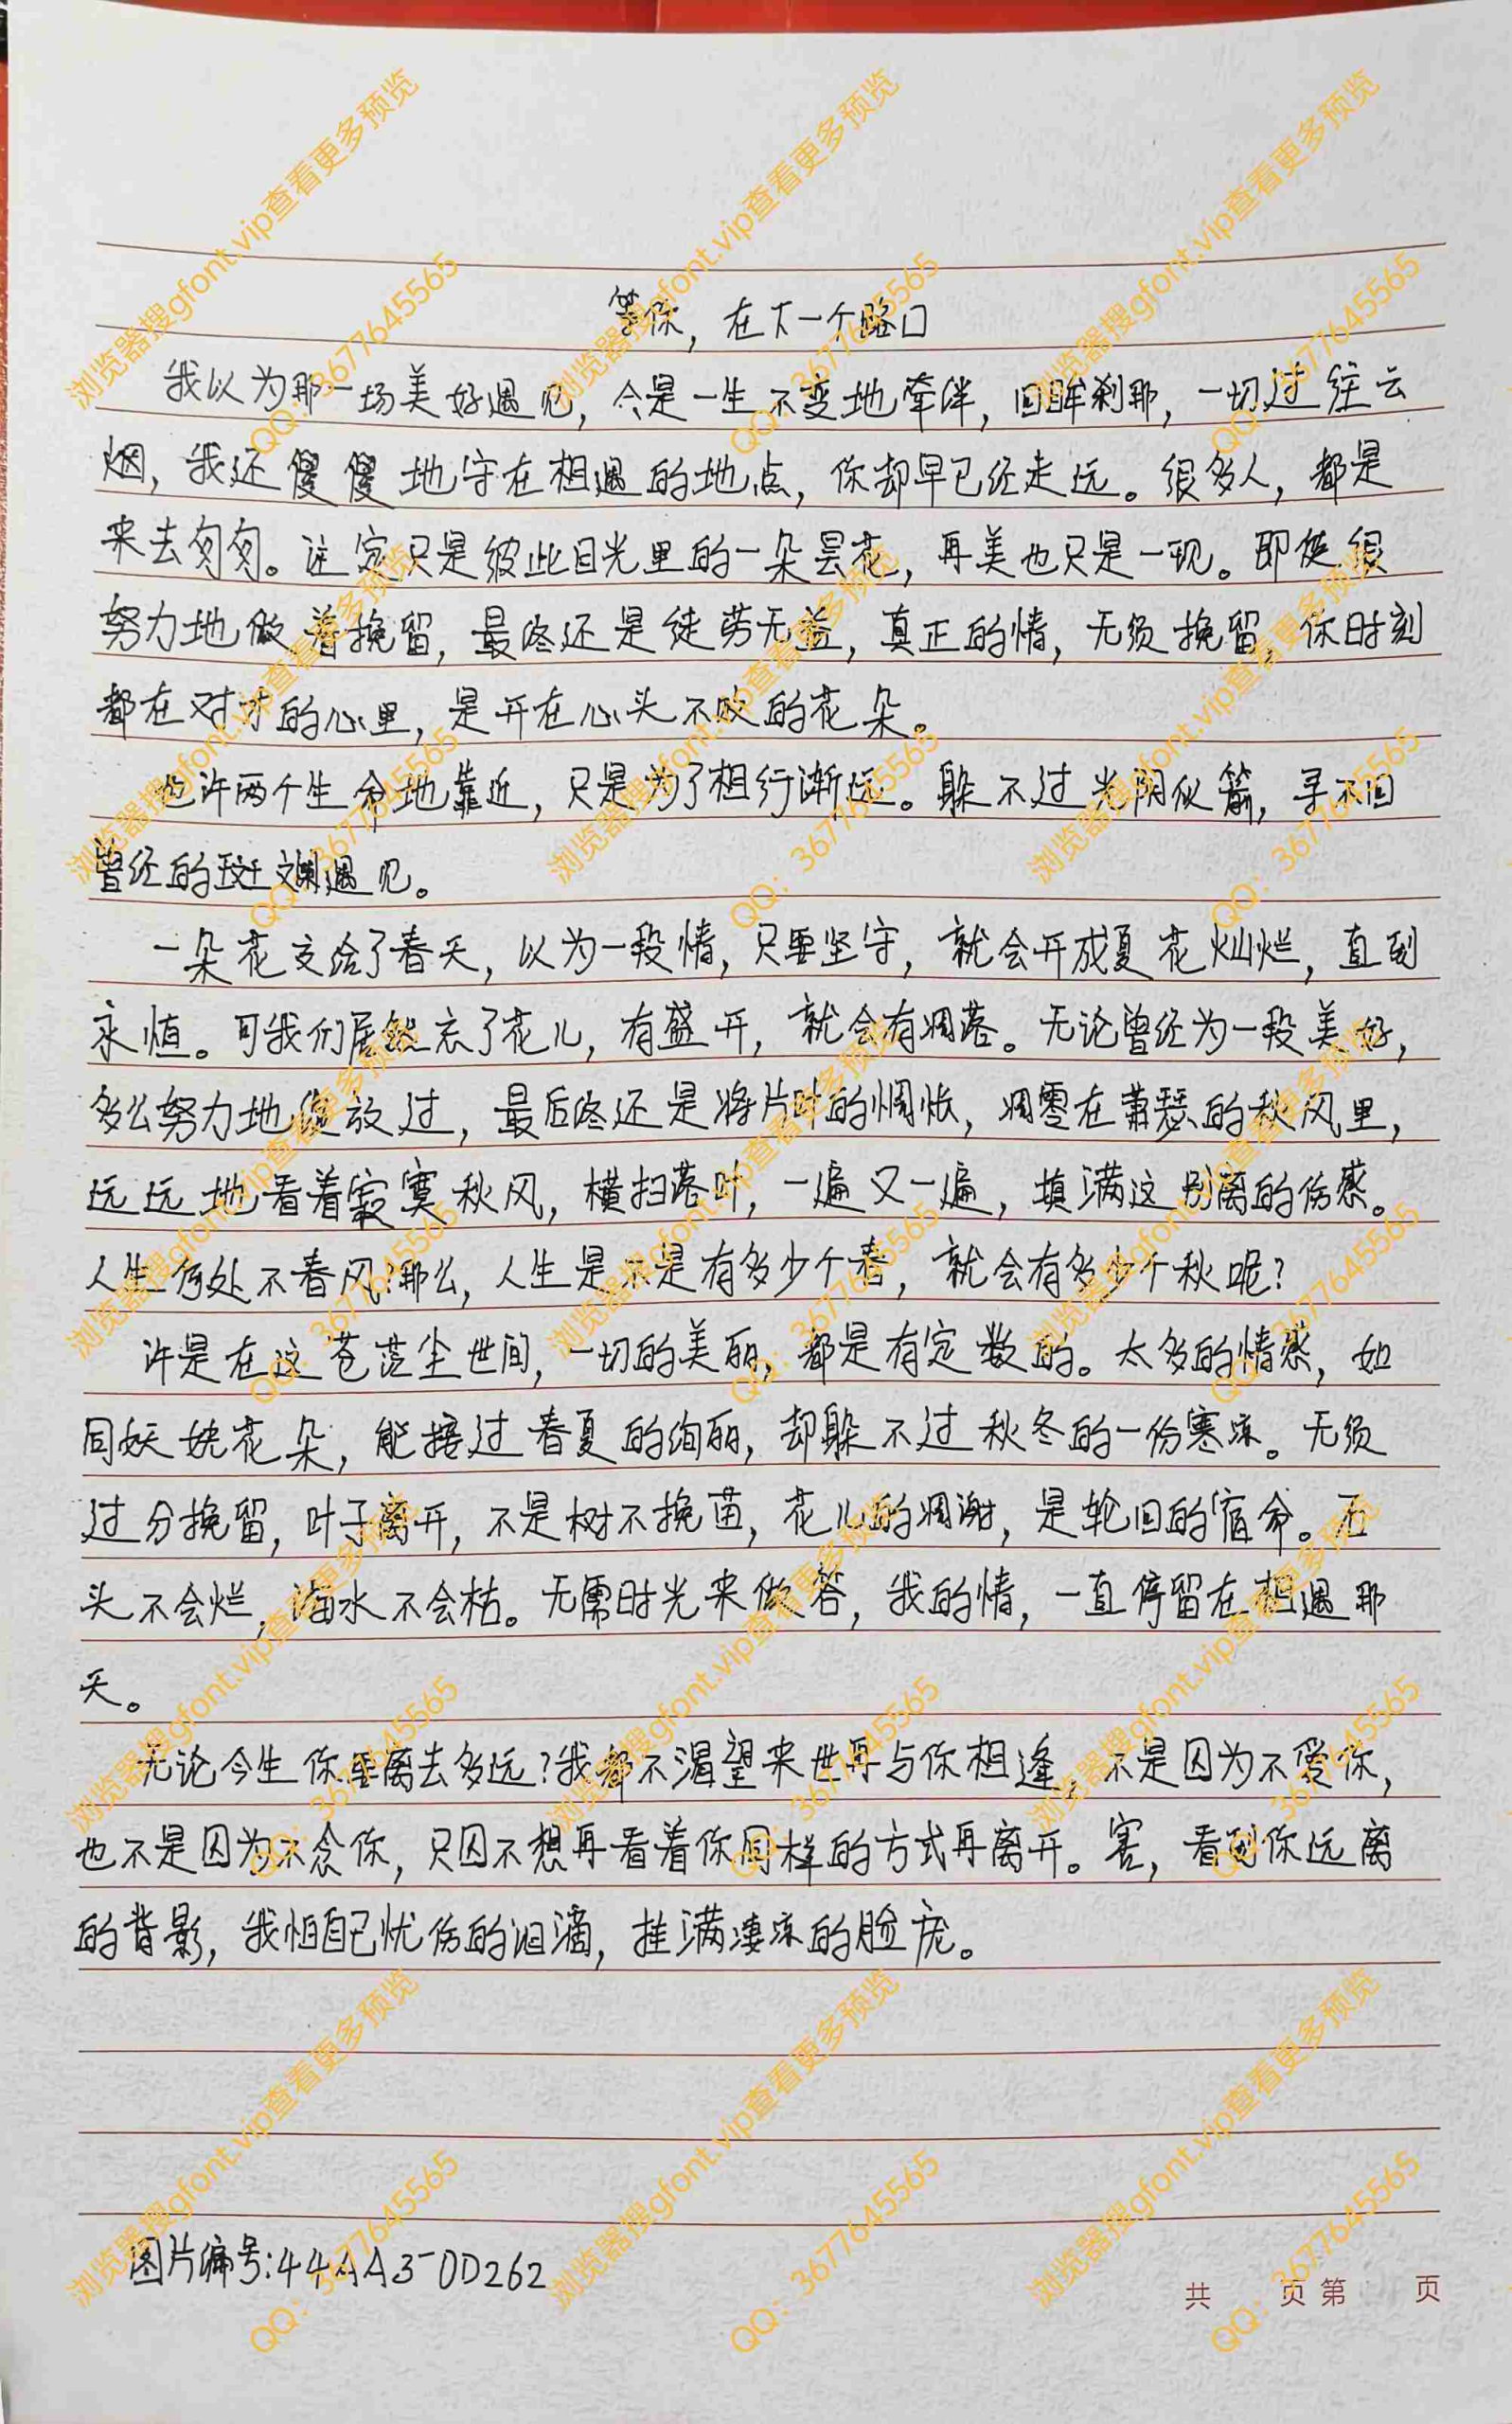 等你，在下一个路口
我以为那一场美好遇见，会是一生不变地牵绊，回眸刹那，一切过往云
烟，我还傻傻地守在相遇的地点，你却早已经走远。很多人，都是
来去匆匆。注定只是彼此目光里的一朵昙花，再美也只是一现。即使很
努力地做着挽留，最终还是徒劳无益，真正的情，无须挽留，你时刻
都在对方的心里，是开在心头不败的花朵。
也许两个生命地靠近，只是为了相行渐远。躲不过光阴似箭，寻不回
曾经的斑斓遇见。
一朵花交给了春天，以为一段情，只要坚守，就会开成夏花灿烂，直到
永恒。可我们居然忘了花儿，有盛开，就会有凋落。无论曾经为一段美好，
多么努力地绽放过，最后终还是将片片的惆怅，凋零在萧瑟的秋风里，
远远地看着寂寞秋风，横扫落叶，一遍又一遍，填满这别离的伤感。
人生何处不春风?那么，人生是不是有多少个春，就会有多少个秋呢?
许是在这苍茫尘世间，一切的美丽，都是有定数的。太多的情感，如
同妖娆花朵，能接过春夏的绚丽，却躲不过秋冬的一份寒凉。无须
过分挽留，叶子离开，不是树不挽留，花儿的凋谢，是轮回的宿命。石
头不会烂，海水不会枯。无需时光来做答，我的情，一直停留在相遇那
天。
无论今生你要离去多远?我都不渴望来世再与你相逢，不是因为不爱你，
也不是因为不念你，只因不想再看着你同样的方式再离开。害，看到你远离
的背影，我怕自己忧伤的泪滴，挂满凄凉的脸庞。
图片编号:44AA3-0D262
共 页第 页
浏览器搜gfont.vip查看更多预览
QQ：3677645565